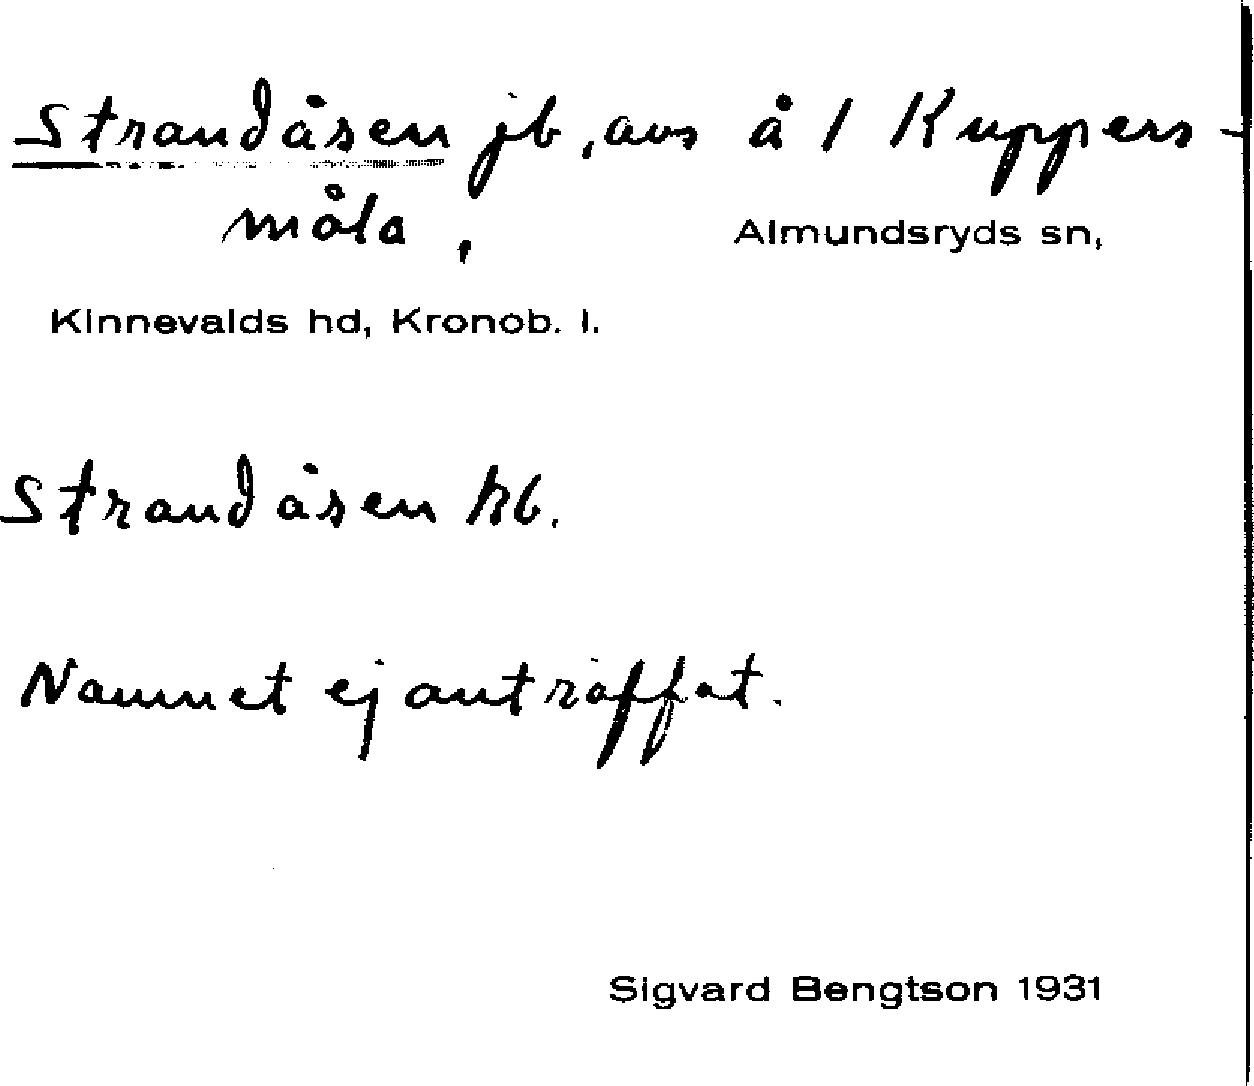 Strandåsen jb, avs å 1 Kuppers-
måla, Almundsryds sn,
Kinnevalds hd, Kronob. l.
Strandåsen kb.
Namnet ej anträffat.
Sigvard Bengtson 1931